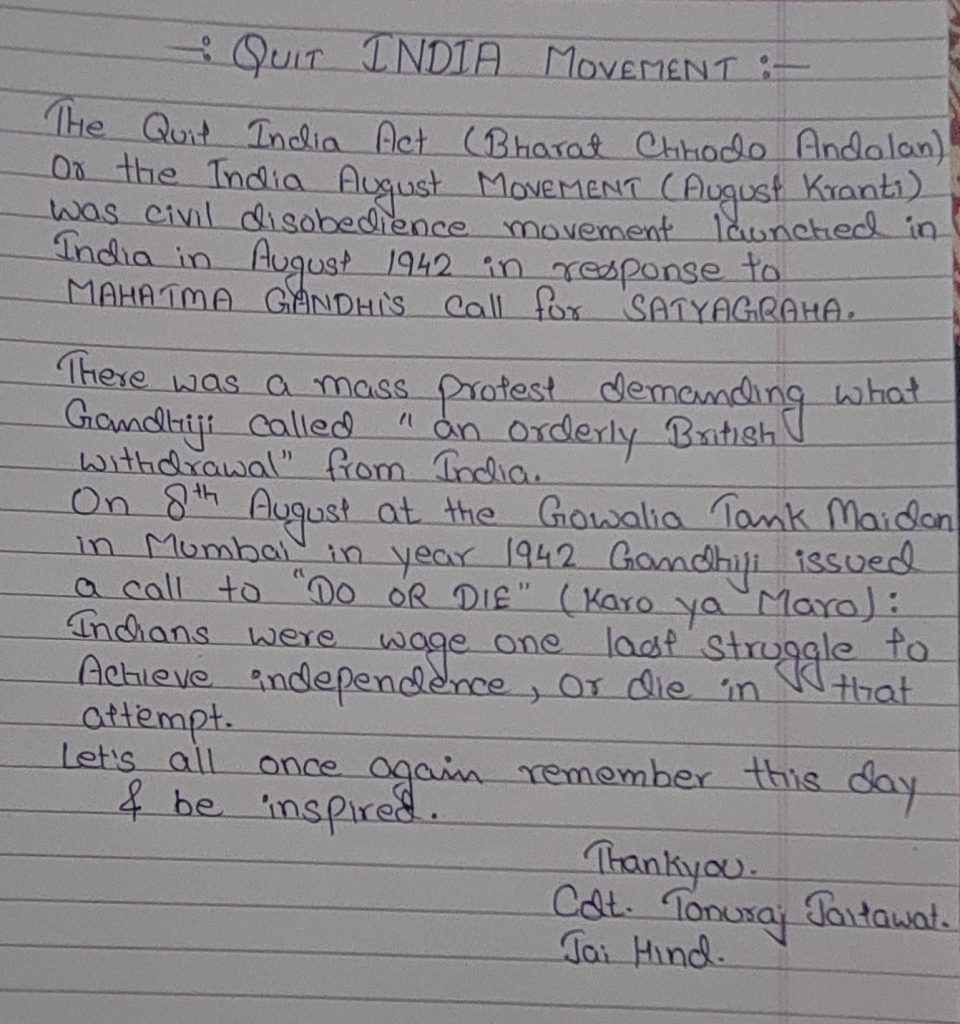 -: QUIT INDIA MOVEMENT :-
The Quit India Act (Bharat Chhodo Andolan)
or the India August MOVEMENT (August Kranti)
was civil disobedience movement launched in
India in August 1942 in response to
MAHATMA GANDHi's call for SATYAGRAHA.
There was a mass protest demanding what
Gandhiji called "an orderly British
withdrawal" from India.
On 8th August at the Gowalia Tank Maidan
in Mumbai in year 1942 Gandhiji issued
a call to "DO OR DIE" (Karo ya Maro):
Indians were wage one last struggle to
Achieve independence, or die in that
attempt.
Let's all once again remember this day
& be inspired.
Thankyou.
Cdt. Tanuraj Jaitawat.
Jai Hind.